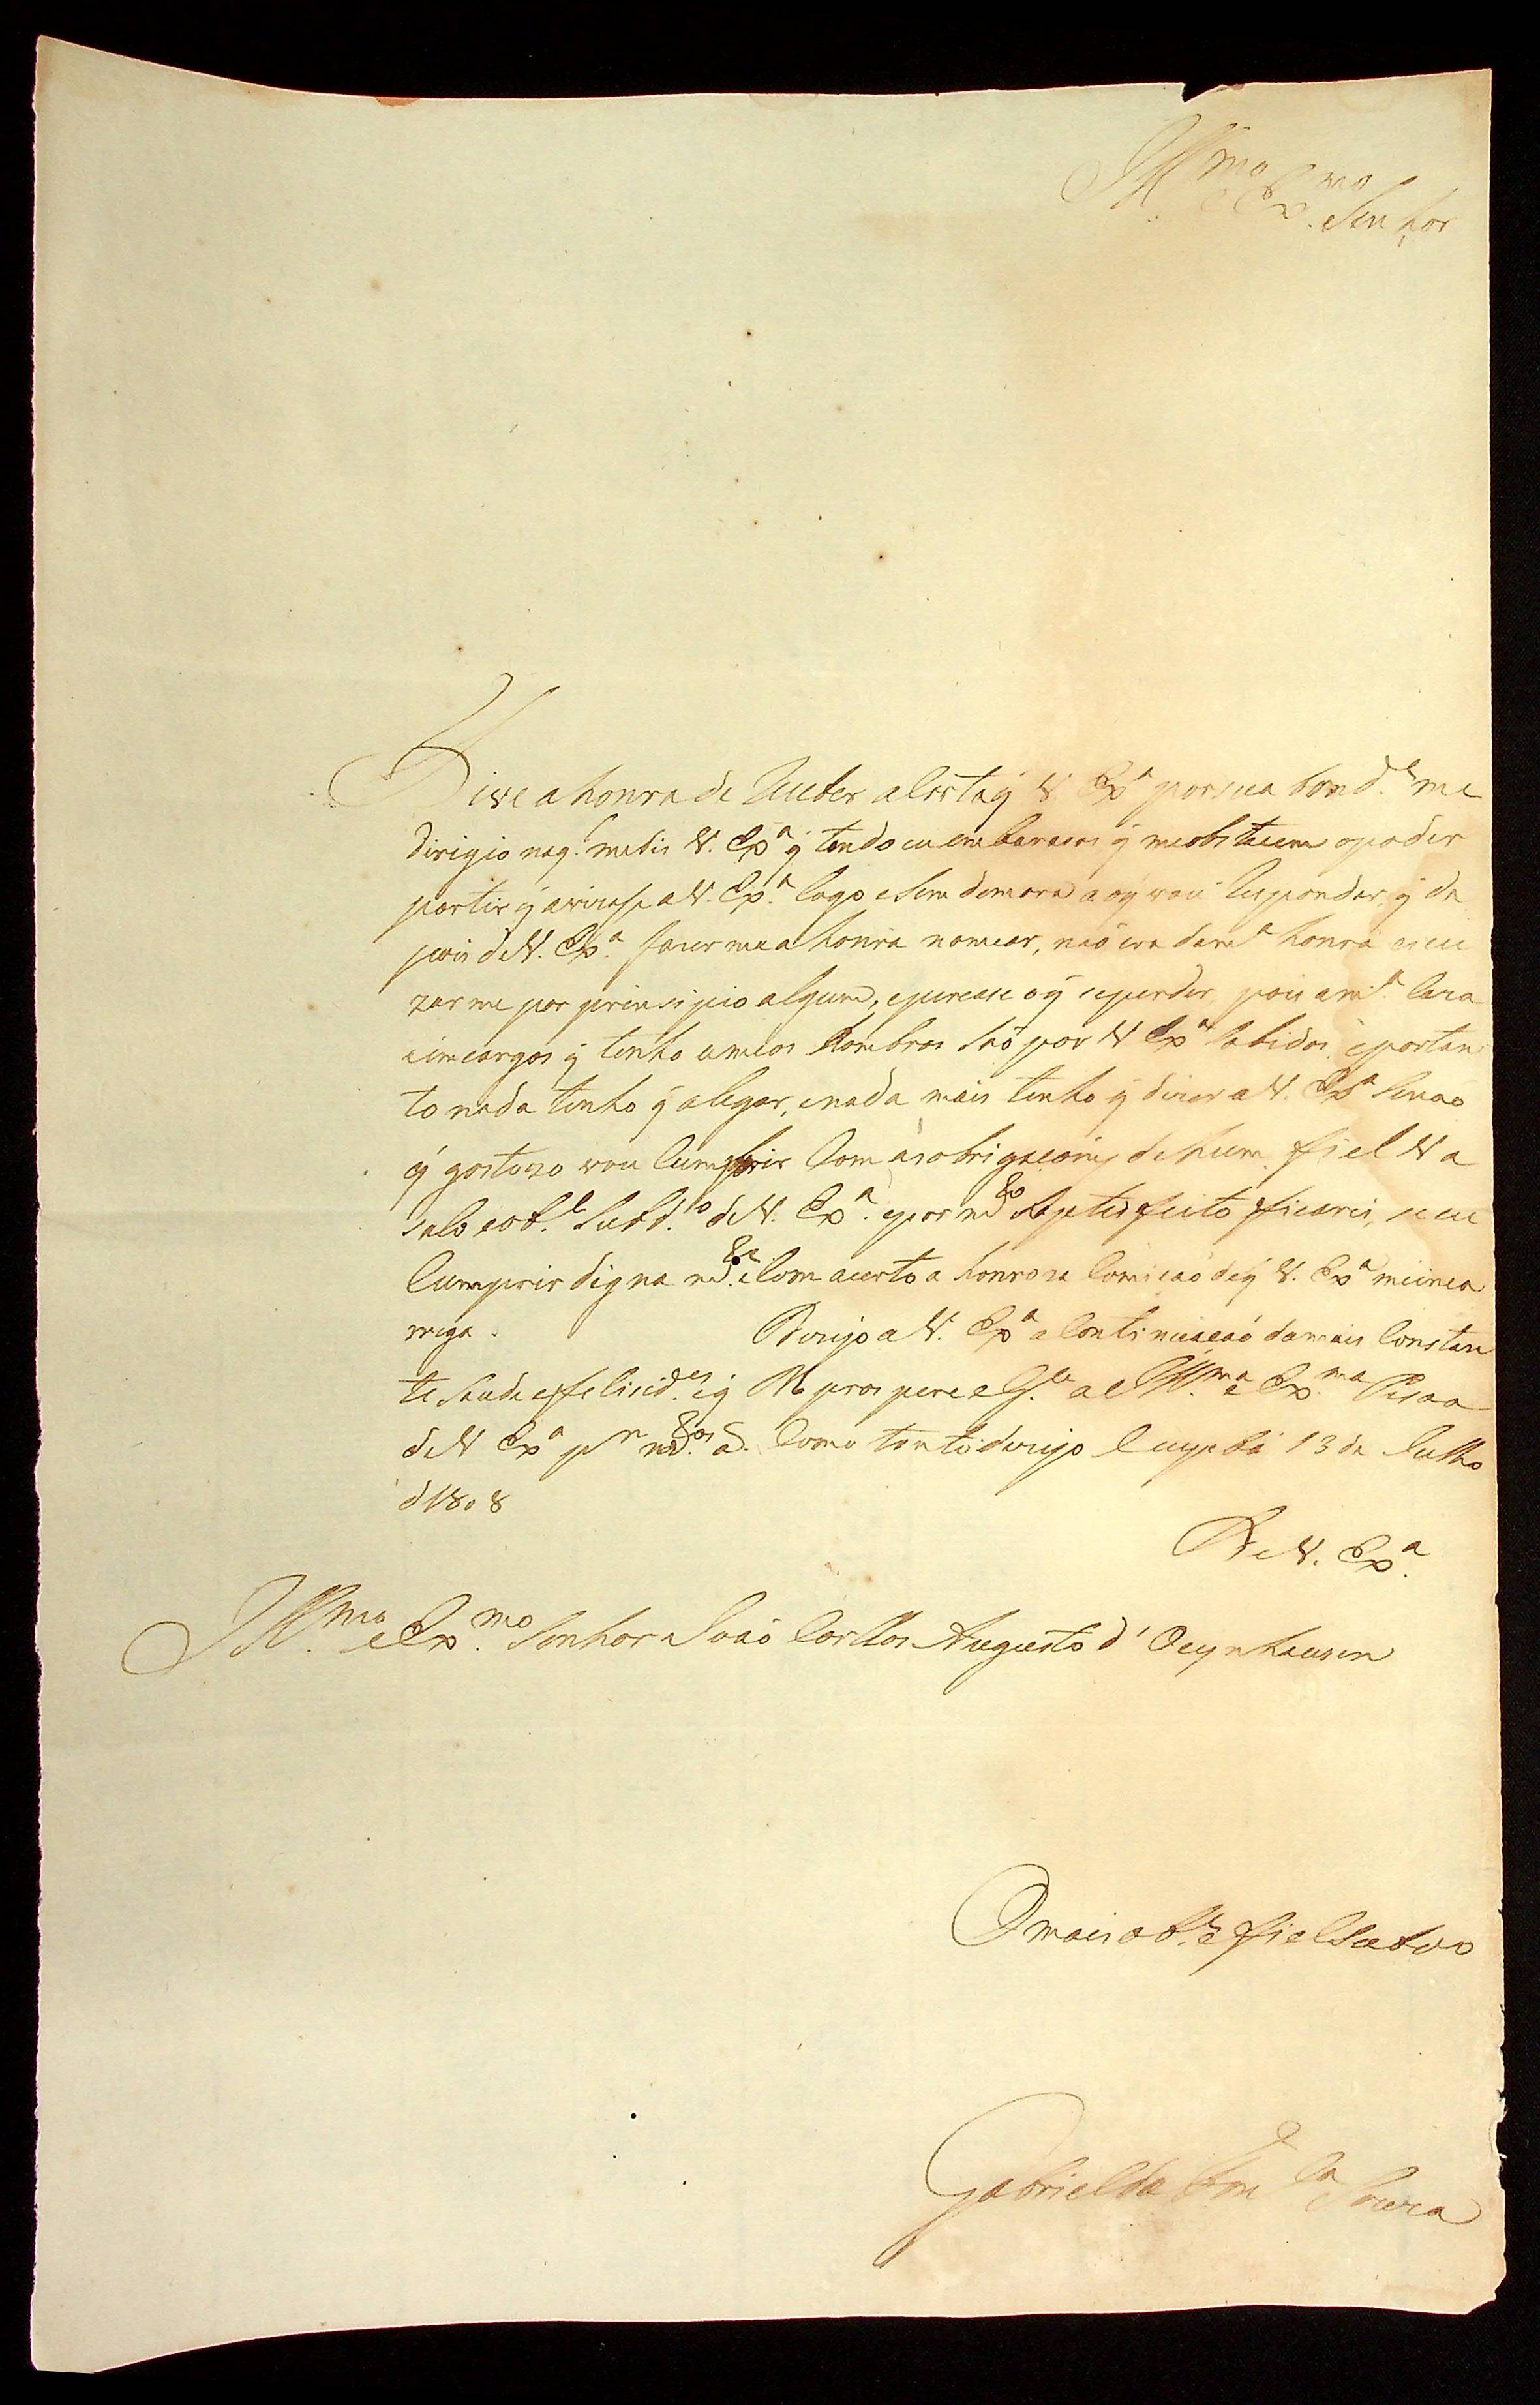 Ill.mo e Ex.mo Senhor
Tive a honra de receber a Carta q̃ V. Ex.a por sua bond.e me
dirigio na q.l me dis V. Ex.a q̃ tendo eu embarasos q̃ me obstasem o poder
partir q̃ avizase a V. Ex.a logo e sem demora a o q̃ vou responder, q̃ de
pois de V. Ex.a fazer me a honra nomear, não era da m.a honra escu
zar me por prinsipio algum, epurease o q̃ seperder, pois a m.a Caza
e emcargos q̃ tenho a meos hombros são por V. Ex.a sabidos, e portan
to nada tenho q̃ alegar, e nada mais tenho q̃ dizer a V. Ex.a senão
q̃ gostozo vou Cumprir Com as obrigacoins de hum fiel Va
salo e ob.e Subd.o de V. Ex.a, e por m.do satisfeito ficarei, se eu
Cumprir digna m.te e Com acerto a honroza Comicão de q̃ V. Ex.a me
rega. Dezejo a V. Ex.a a Continuacaõ da mais Constan
te saude e felisid.es e q̃ Ds prospere e G.e a Ill.ma e Ex.ma Pesoa
de V. Ex.a p.r as. Como tanto dezijo Cuyabá 13 de Julho
d 1808
De V. Ex.a
Ill.mo e Ex.mo Senhor João Carllos Augusto d' Oeynhausen
O mais ob.e e fiel Subdo
Gabriel da Fon.ca e Souza